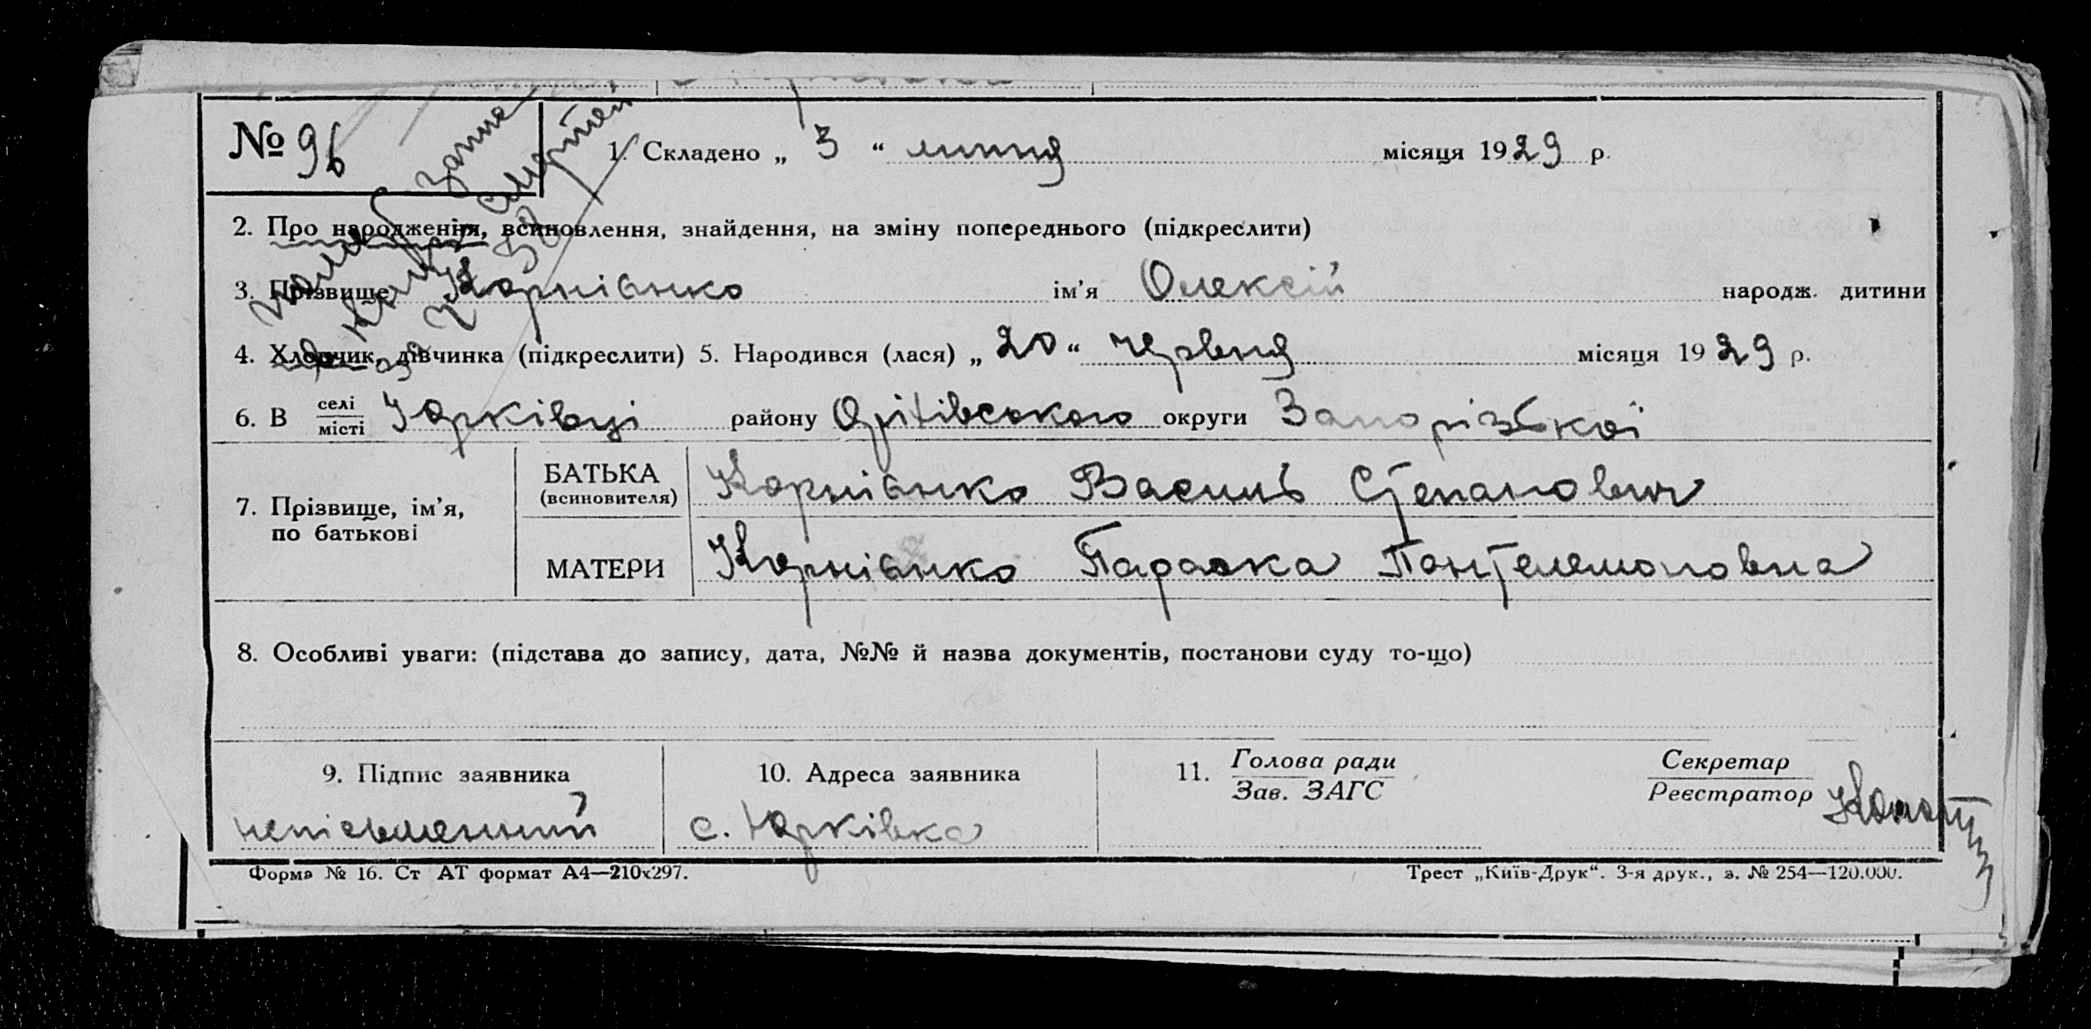 № 96
1. Складено „ 3 “ липня місяця 1929 р.
2. Про народження, всиновлення, знайдення, на зміну попереднього (підкреслити)
3. Прізвище Корніэнко ім’я Олексій народж. дитини
4. Хлопчик, дівчинка (підкреслити) 5. Народився (лася) „ 20 “ червня місяця 1929 р.
6. В селі місті Юрківці району Оріхівського округи Запорізької
7. Прізвище, ім’я, по батькові
БАТЬКА (всиновителя) Корніэнко Василь Степанович
МАТЕРИ Корніэнко Параска Пантелемоновна
8. Особливі уваги: (підстава до запису, дата, №№ й назва документів, постанови суду то-що)
9. Підпис заявника
неписьменний
10. Адреса заявника
с. Юрківка
11. Голова ради
Зав. ЗАГС
Секретар
Реєстратор
Форма № 16. Ст АТ формат А4—210х297.
Трест „Київ-Друк“. 3-я друк., з. № 254—120.000.